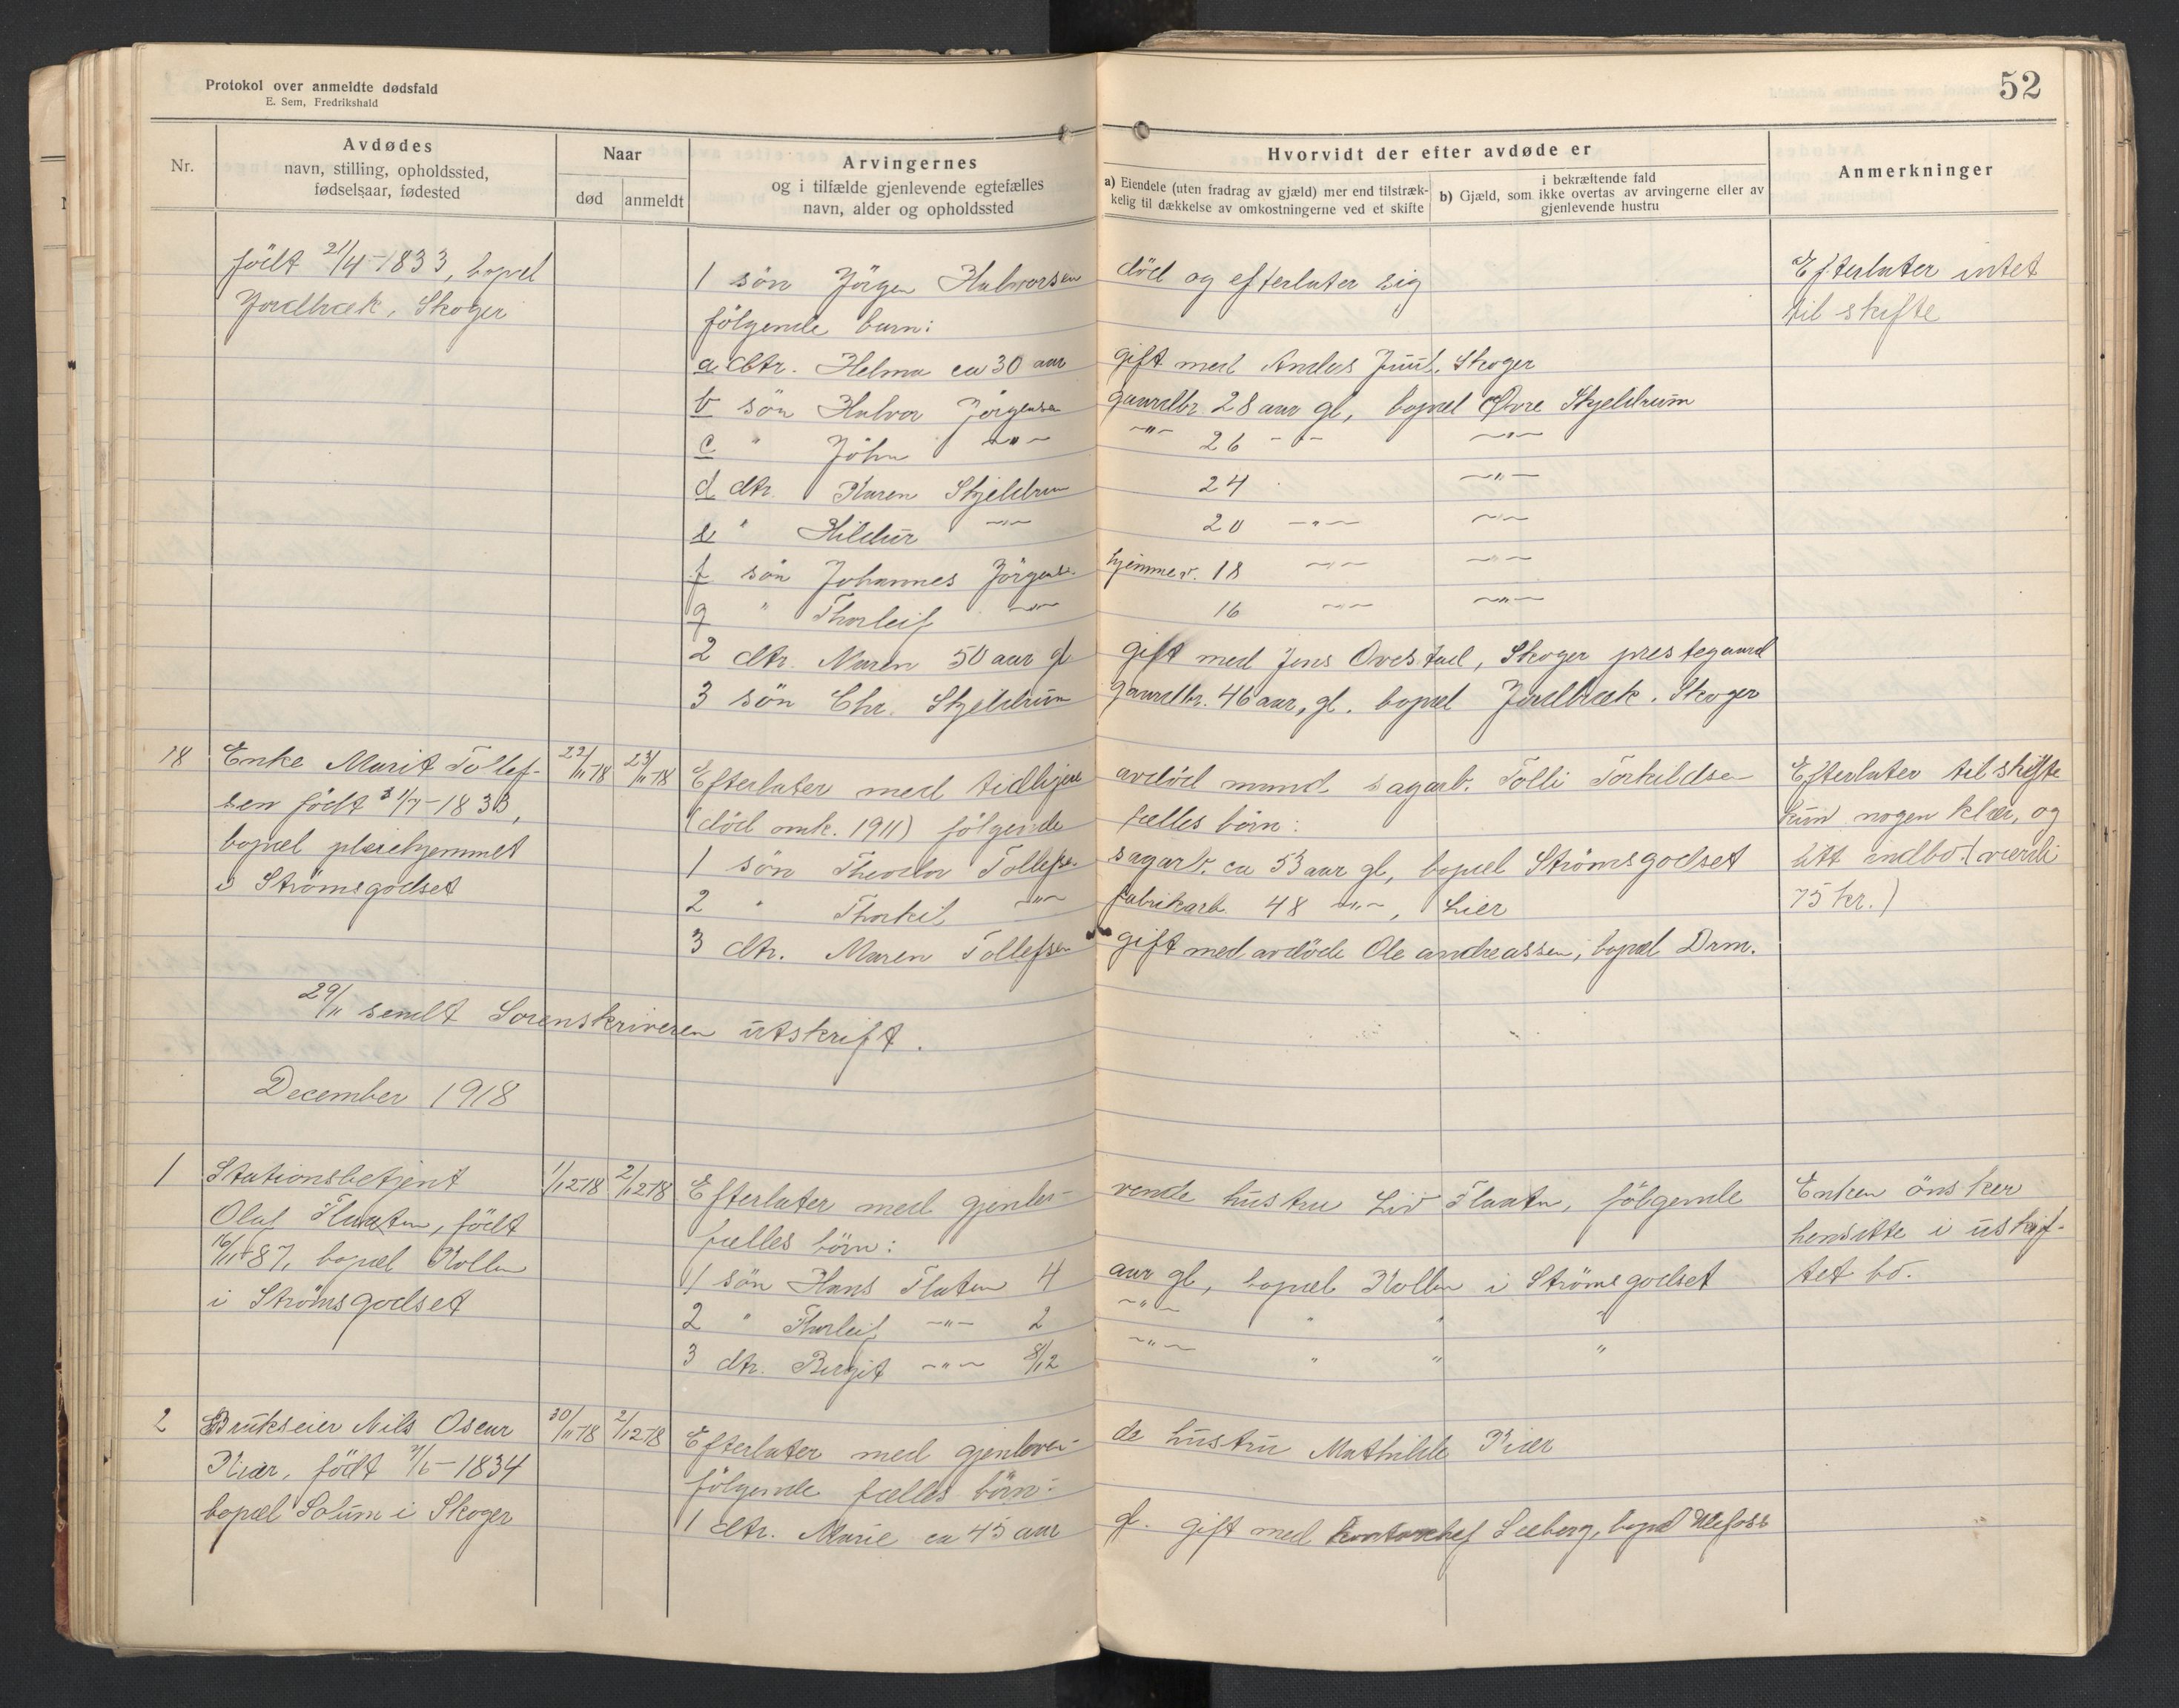 Protokol over anmeldte dødsfald
E. Sem, Fredrikshald
52
Nr.
Avdødes
navn, stilling, opholdssted,
fødselsaar, fødested
Naar
død
anmeldt
Arvingernes
og i tilfælde gjenlevende egtefælles
navn, alder og opholdssted
Hvorvidt der efter avdøde er
a) Eiendele (uten fradrag av gjæld) mer end tilstræk-
kelig til dækkelse av omkostningerne ved et skifte
i bekræftende fald
b) Gjæld, som ikke overtas av arvingerne eller av
gjenlevende hustru
Anmerkninger
født 21/4-1833, bopæl
Jordbræk, Skoger
1 søn Jörgen Halvorsen død og efterlater sig
følgende barn:
a dtr. Helma ca 30 aar gift med Anders Juul, Skoger
b søn Halvor Jörgensen gaardbr. 28 aar gl, bopæl Øvre Skjeldrum
c " John -"- -"- 26 -"- -"-
d dtr. Karen Skjeldrum 24 -"-
e " Hildur -"- 20 -"- -"-
f søn Johannes Jörgensen hjemmev. 18 -"- -"-
g " Thorleif -"- 16 -"- -"-
2 dtr. Maren 50 aar gl gift med Jens Ovestad, Skoger prestegaard
3 søn Chr. Skjeldrum gaardbr. 46 aar, gl. bopæl Jordbræk, Skoger
Efterlater intet
til skifte
18 Enke Marit Tollef-
sen født 31/7-1833,
bopæl pleiehjemmet
i Strömsgodset
22/11-18 23/11-18
Efterlater med tidligere avdød mand sagarb. Tolli Torkildsen
(død omk. 1911) følgende fælles børn:
1 søn Theodor Tollefsen sagarb. ca 53 aar gl, bopæl Strömsgodset
2 " Thorkil -"- fabrikarb. 48 -"-, Lier
3 dtr. Maren Tollefsen gift med avdøde Ole Andreassen, bopæl Drm.
Efterlater til skifte
kun nogen klær, og
litt indbo (værdi
75 kr.)
29/11 sendt Sorenskriveren utskrift.
December 1918
1 Stationsbetjent
Olaf Flaaten, født
16/11-87, bopæl Kollen
i Strömsgodset
1/12-18 2/12-18
Efterlater med gjenle- vende hustru Liv Flaaten, følgende
fælles børn:
1 søn Hans Flaten 4 aar gl, bopæl Kollen i Strömsgodset
2 " Thorleif -"- 2 -"- " " "
3 dtr. Birgit -"- 8/12 -"- " " "
Enken ønsker
hensitte i uskif-
tet bo.
2 Brukseier Nils Oscar
Kiær, født
1834
bopæl Solum i Skoger
30/11-18 2/12-18
Efterlater med gjenleven- de hustru Mathilde Kiær
følgende fælles børn:
1 dtr. Marie ca 45 aar gl. gift med kontorchef Seeberg, bopæl Ulefoss